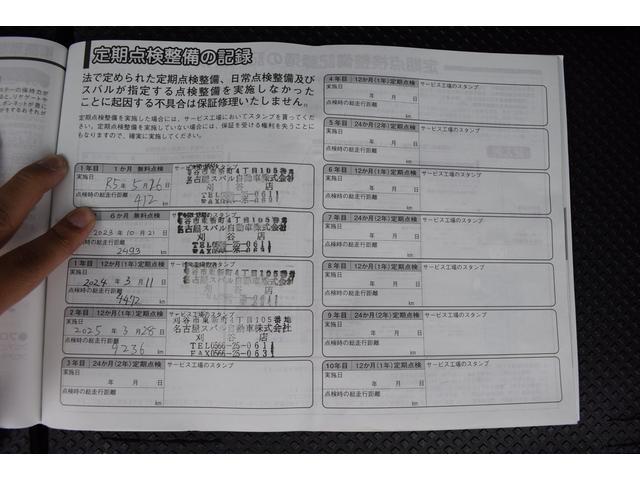 定期点検整備の記録
法で定められた定期点検整備、日常点検整備及び
スバルが指定する点検整備を実施しなかった
ことに起因する不具合は保証修理いたしません。
定期点検整備を実施した場合には、サービス工場においてスタンプを貰ってくだ
さい。定期点検整備を実施していない場合には、保証を受ける権利を失うことに
もなりますので、確実に実施してください。
1年目 1か月 無料点検 サービス工場のスタンプ
実施日
R5年 5月16日
点検時の総走行距離
412 km
刈谷市東新町4丁目105番地
名古屋スバル自動車株式会社
刈谷店
6か月 無料点検 サービス工場のスタンプ
2023年10月21日
点検時の総走行距離
2493 km
名古屋スバル自動車株式会社
刈谷店
1年目 12か月(1年)定期点検 サービス工場のスタンプ
実施日
2024年 3月11日
点検時の総走行距離
4492 km
刈谷市東新町4丁目105番地
名古屋スバル自動車株式会社
刈谷店
2年目 12か月(1年)定期点検 サービス工場のスタンプ
実施日
2025年 3月28日
点検時の総走行距離
9236 km
刈谷市東新町4丁目105番地
名古屋スバル自動車株式会社
刈谷店
TEL0566-25-0611
FAX0566-25-0631
3年目 24か月(2年)定期点検 サービス工場のスタンプ
実施日
年 月 日
点検時の総走行距離
km
4年目 12か月(1年)定期点検 サービス工場のスタンプ
実施日
年 月 日
点検時の総走行距離
km
5年目 24か月(2年)定期点検 サービス工場のスタンプ
実施日
年 月 日
点検時の総走行距離
km
6年目 12か月(1年)定期点検 サービス工場のスタンプ
実施日
年 月 日
点検時の総走行距離
km
7年目 24か月(2年)定期点検 サービス工場のスタンプ
実施日
年 月 日
点検時の総走行距離
km
8年目 12か月(1年)定期点検 サービス工場のスタンプ
実施日
年 月 日
点検時の総走行距離
km
9年目 24か月(2年)定期点検 サービス工場のスタンプ
実施日
年 月 日
点検時の総走行距離
km
10年目 12か月(1年)定期点検 サービス工場のスタンプ
実施日
年 月 日
点検時の総走行距離
km